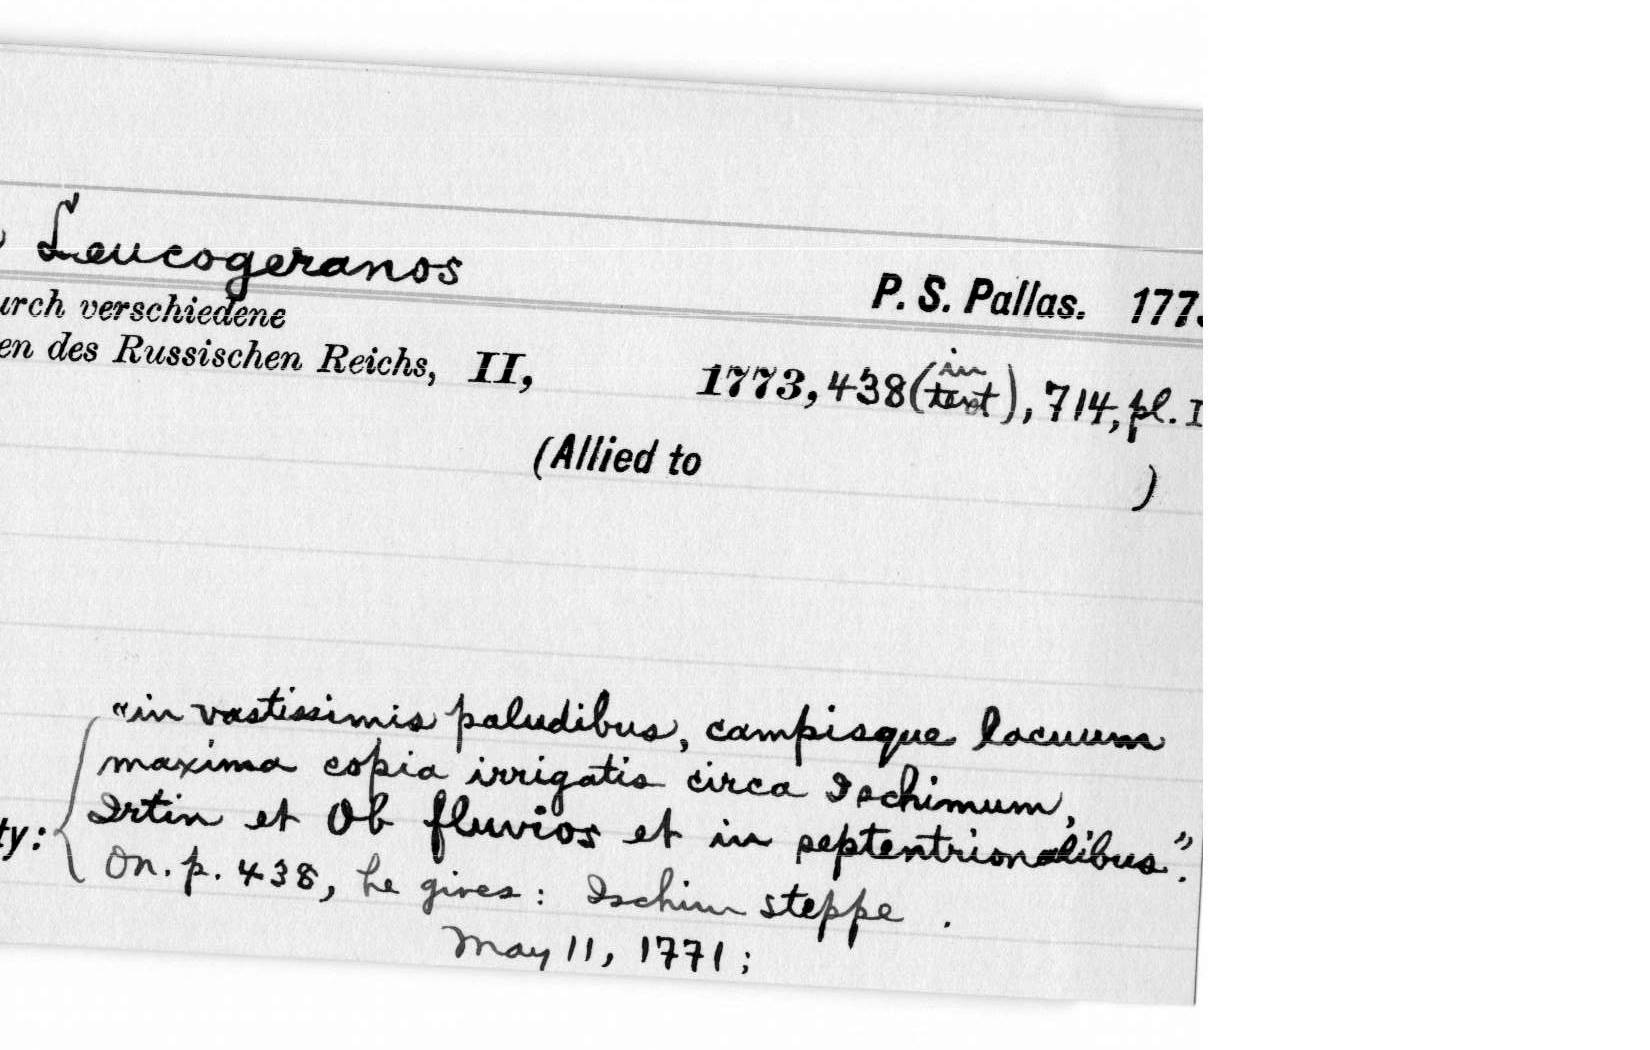 Leucogeranos
P. S. Pallas. 177
urch verschiedene
en des Russischen Reichs, II, 1773, 438 (in text), 714, pl. I
(Allied to )
"in vastissimis paludibus, campisque lacuum
maxima copia irrigatis circa Ischimum,
Irtin et Ob fluvios et in septentrionalibus."
ty:
On. p. 438, he gives: Ischim steppe .
May 11, 1771;